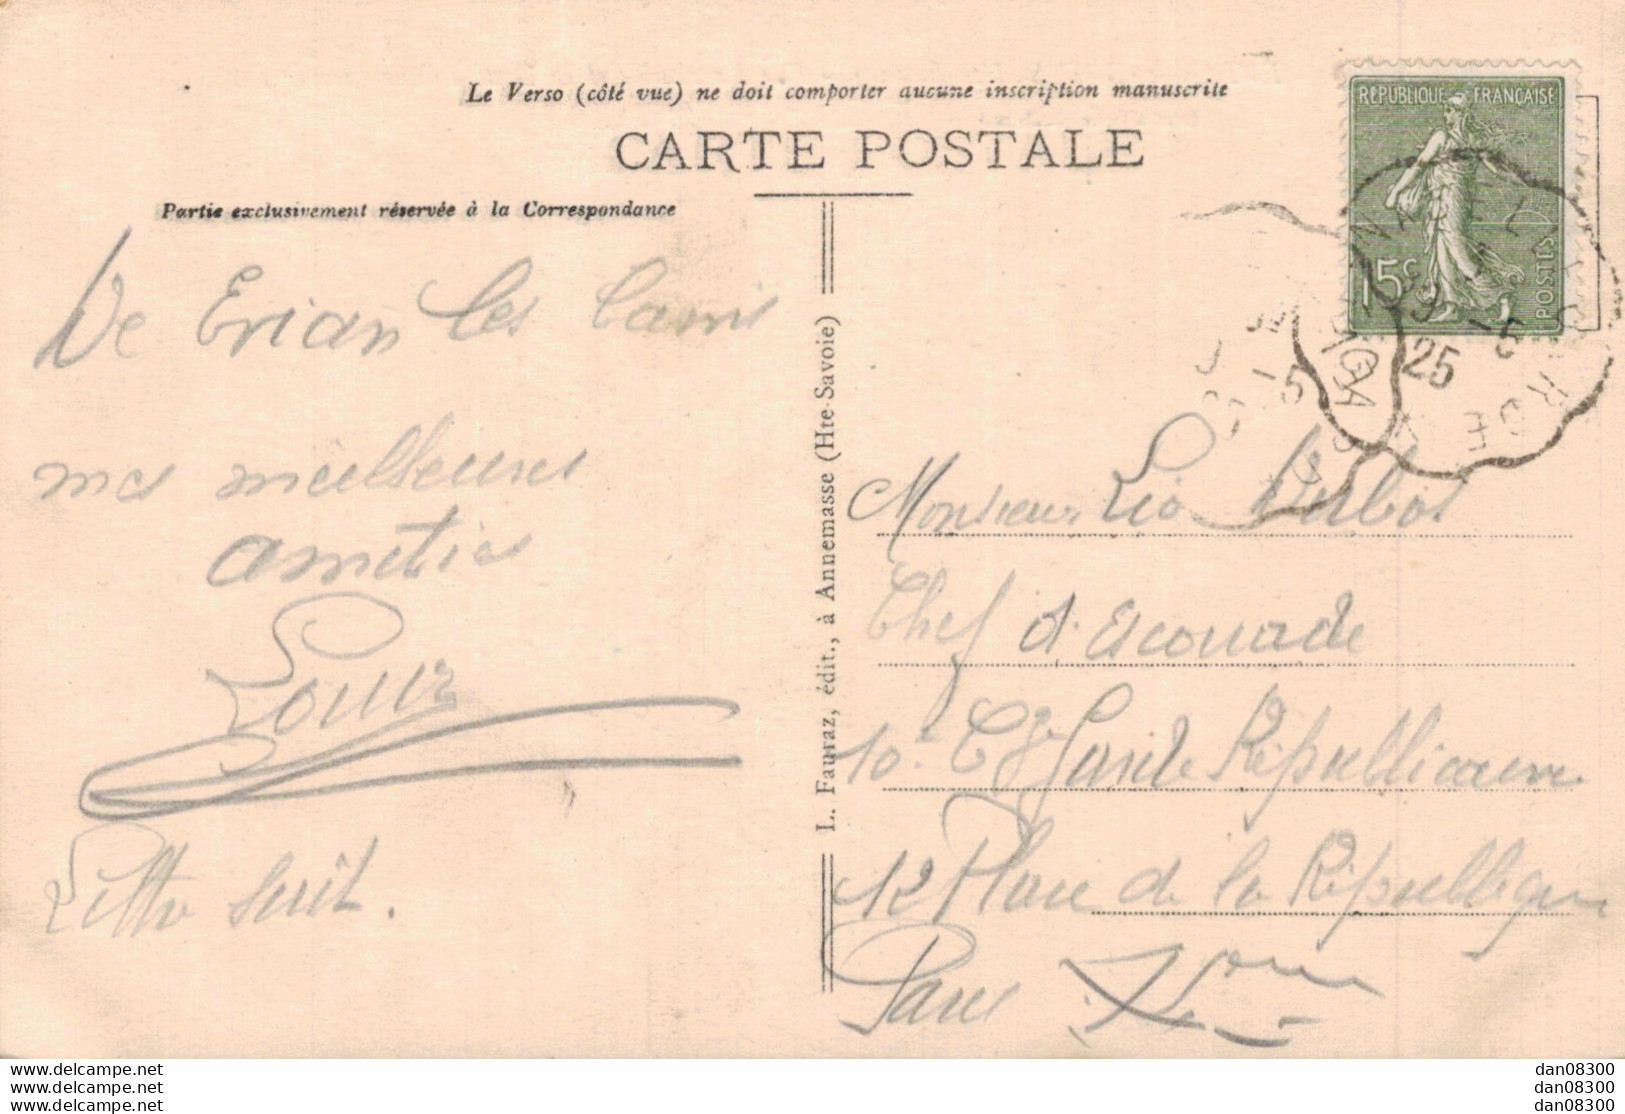 Le Verso (côté vue) ne doit comporter aucune inscription manuscrite
CARTE POSTALE
Partie exclusivement réservée à la Correspondance
REPUBLIQUE FRANÇAISE
15c
POSTES
25
De Evian les bains
mes meilleures
amitiés
Louis
Lettre suit.
L. Fauraz, édit., à Annemasse (Hte-Savoie)
Monsieur Léo Dubos
Chef d'Escouade
10e Cie Garde Républicaine
12 Place de la République
Paris
www.delcampe.net
www.delcampe.net
www.delcampe.net
dan08300
dan08300
dan08300